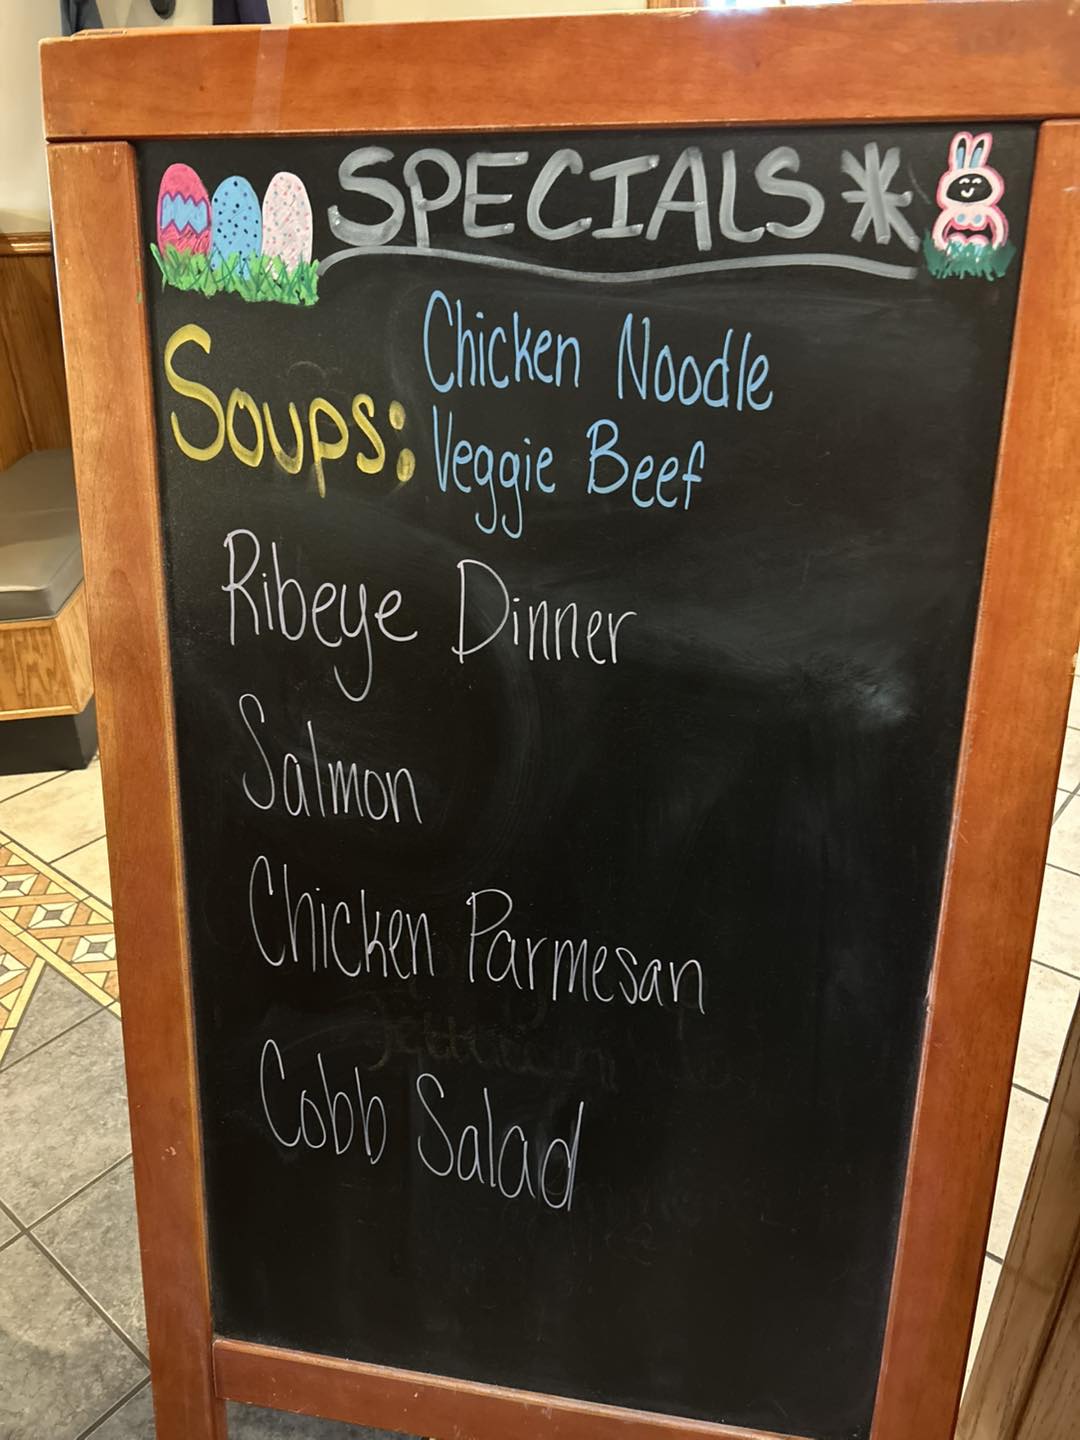 SPECIALS *
Soups: Chicken Noodle
Veggie Beef
Ribeye Dinner
Salmon
Chicken Parmesan
Cobb Salad